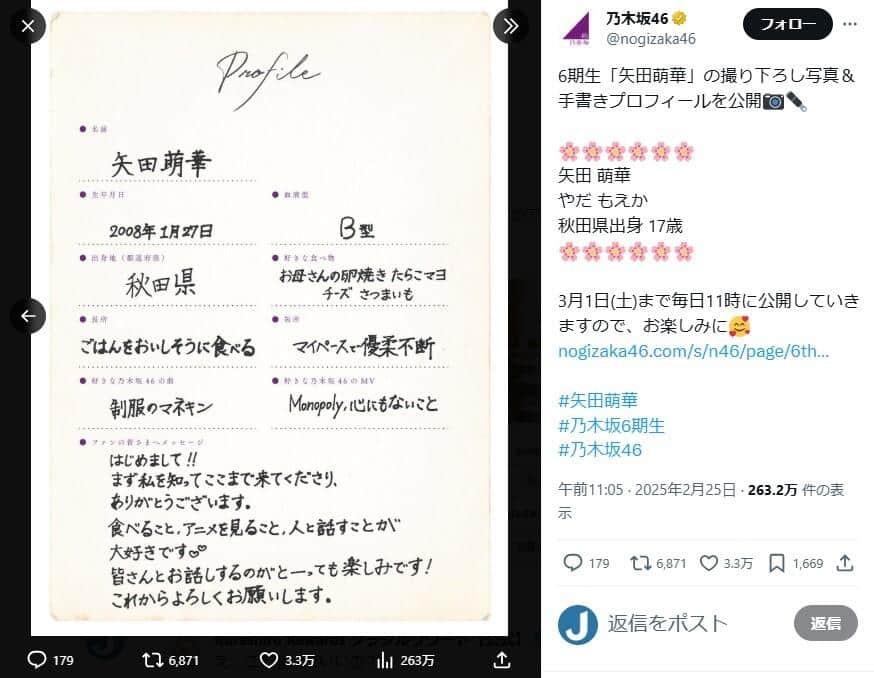 Profile
名前
矢田萌華
生年月日
血液型
2008年1月27日
B型
出身地(都道府県)
好きな食べ物
秋田県
お母さんの卵焼き たらこマヨ
チーズ さつまいも
長所
短所
ごはんをおいしそうに食べる
マイペースで優柔不断
好きな乃木坂46の曲
好きな乃木坂46のMV
制服のマネキン
Monopoly, 心にもないこと
ファンの皆さまへメッセージ
はじめまして!!
まず私を知ってここまで来てくださり、
ありがとうございます。
食べること,アニメを見ること,人と話すことが
大好きです
皆さんとお話しするのがと一っても楽しみです!
これからよろしくお願いします。
179
6,871
3.3万
263万
乃木坂46
@nogizaka46
フォロー
6期生「矢田萌華」の撮り下ろし写真&
手書きプロフィールを公開📷🖊
🌸🌸🌸🌸🌸🌸
矢田 萌華
やだ もえか
秋田県出身 17歳
🌸🌸🌸🌸🌸🌸
3月1日(土)まで毎日11時に公開していき
ますので、お楽しみに🥰
nogizaka46.com/s/n46/page/6th…
#矢田萌華
#乃木坂6期生
#乃木坂46
午前11:05 · 2025年2月25日 · 263.2万 件の表
示
179
6,871
3.3万
1,669
返信をポスト
返信